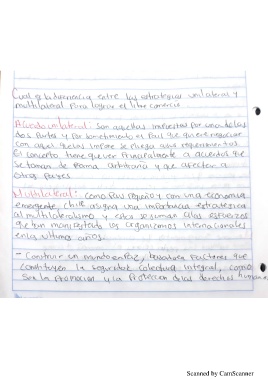 Cual es la diferencia entre las estrategias unilaterales y
multilateral para lograr el libre comercio
unilateral: Son aquellas impuestas por una de las
dos partes y por sometimiento el país que quiere negociar
con aquel que las impone se pliega a sus requerimientos.
El concepto tiene que ver principalmente a acuerdos que
se toman de forma arbitraria y que afectan a
otras partes
Multilateral: como país pequeño y con una economía
emergente, Chile asigna una importancia estratégica
al multilateralismo y esto se suman a los esfuerzos
que han manifestado los organismos internacionales
en los últimos años.
- Construir un mundo en paz, basado en factores que
constituyen la seguridad colectiva integral, como
son la promoción y la protección de los derechos humanos
Scanned by CamScanner